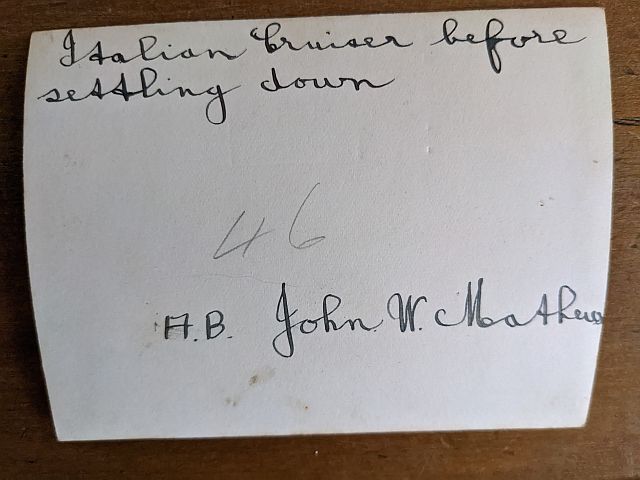 Italian Cruiser before
settling down
46
A.B. John W. Mathews